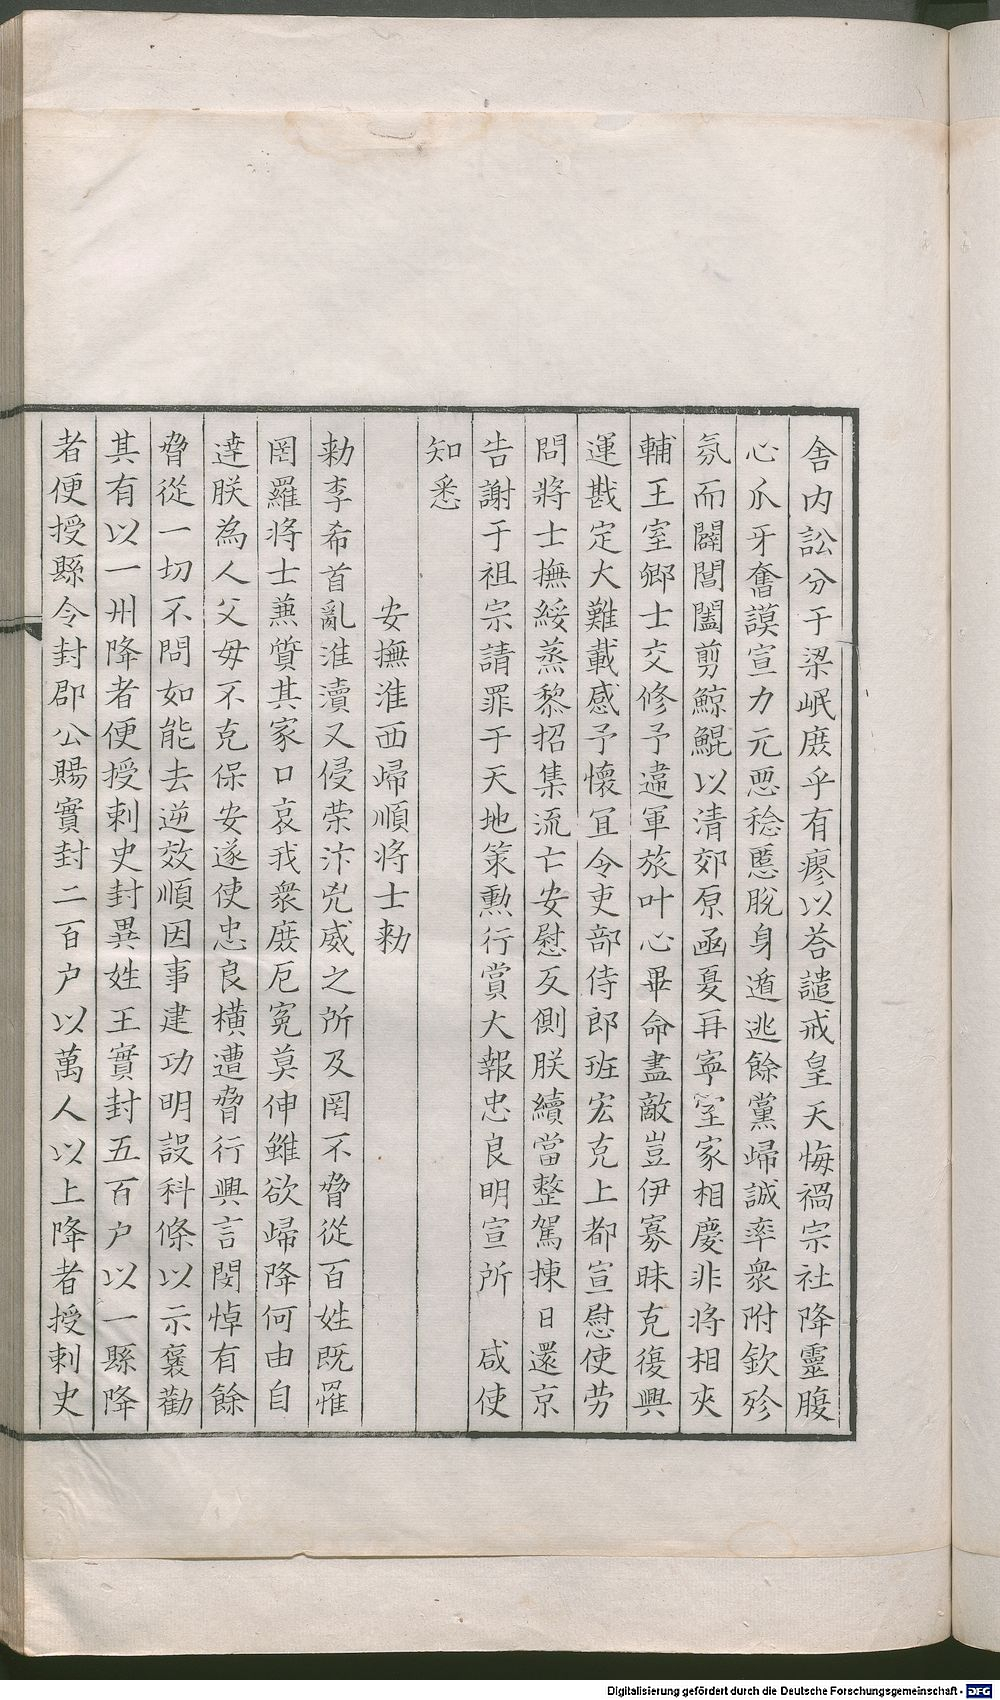 舎内訟分于梁岷庻乎有瘳以荅譴戒皇天悔禍宗社降靈腹
心爪牙奮謨宣力元惡稔慝脫身遁逃餘黨歸誠率衆附欽殄
氛而闢閶闔剪鯨鯤以清郊原函夏再寧室家相慶非將相夾
輔王室鄉士交修予違軍旅叶心畢命盡敵豈伊寡昧克復興
運戡定大難載感予懷宜令吏部侍郎班宏克上都宣慰使劳
問將士撫綏蒸黎招集流亡安慰反側朕續當整駕揀日還京
告謝于祖宗請罪于天地策勲行賞大報忠良明宣所　咸使
知悉
安撫淮西歸順將士勑
勑李希首亂淮瀆又侵荣汴兇威之所及罔不脅從百姓既罹
罔羅將士蕪質其家口哀我衆庻厄寃莫伸雖欲歸降何由自
達朕為人父母不克保安遂使忠良橫遭脅行興言閔悼有餘
脅從一切不問如能去逆效順因事建功明設科條以示襃勸
其有以一州降者便授刺史封異姓王實封五百户以一縣降
者便授縣令封郡公賜實封二百户以萬人以上降者授刺史
Digitalisierung gefördert durch die Deutsche Forschungsgemeinschaft - DFG